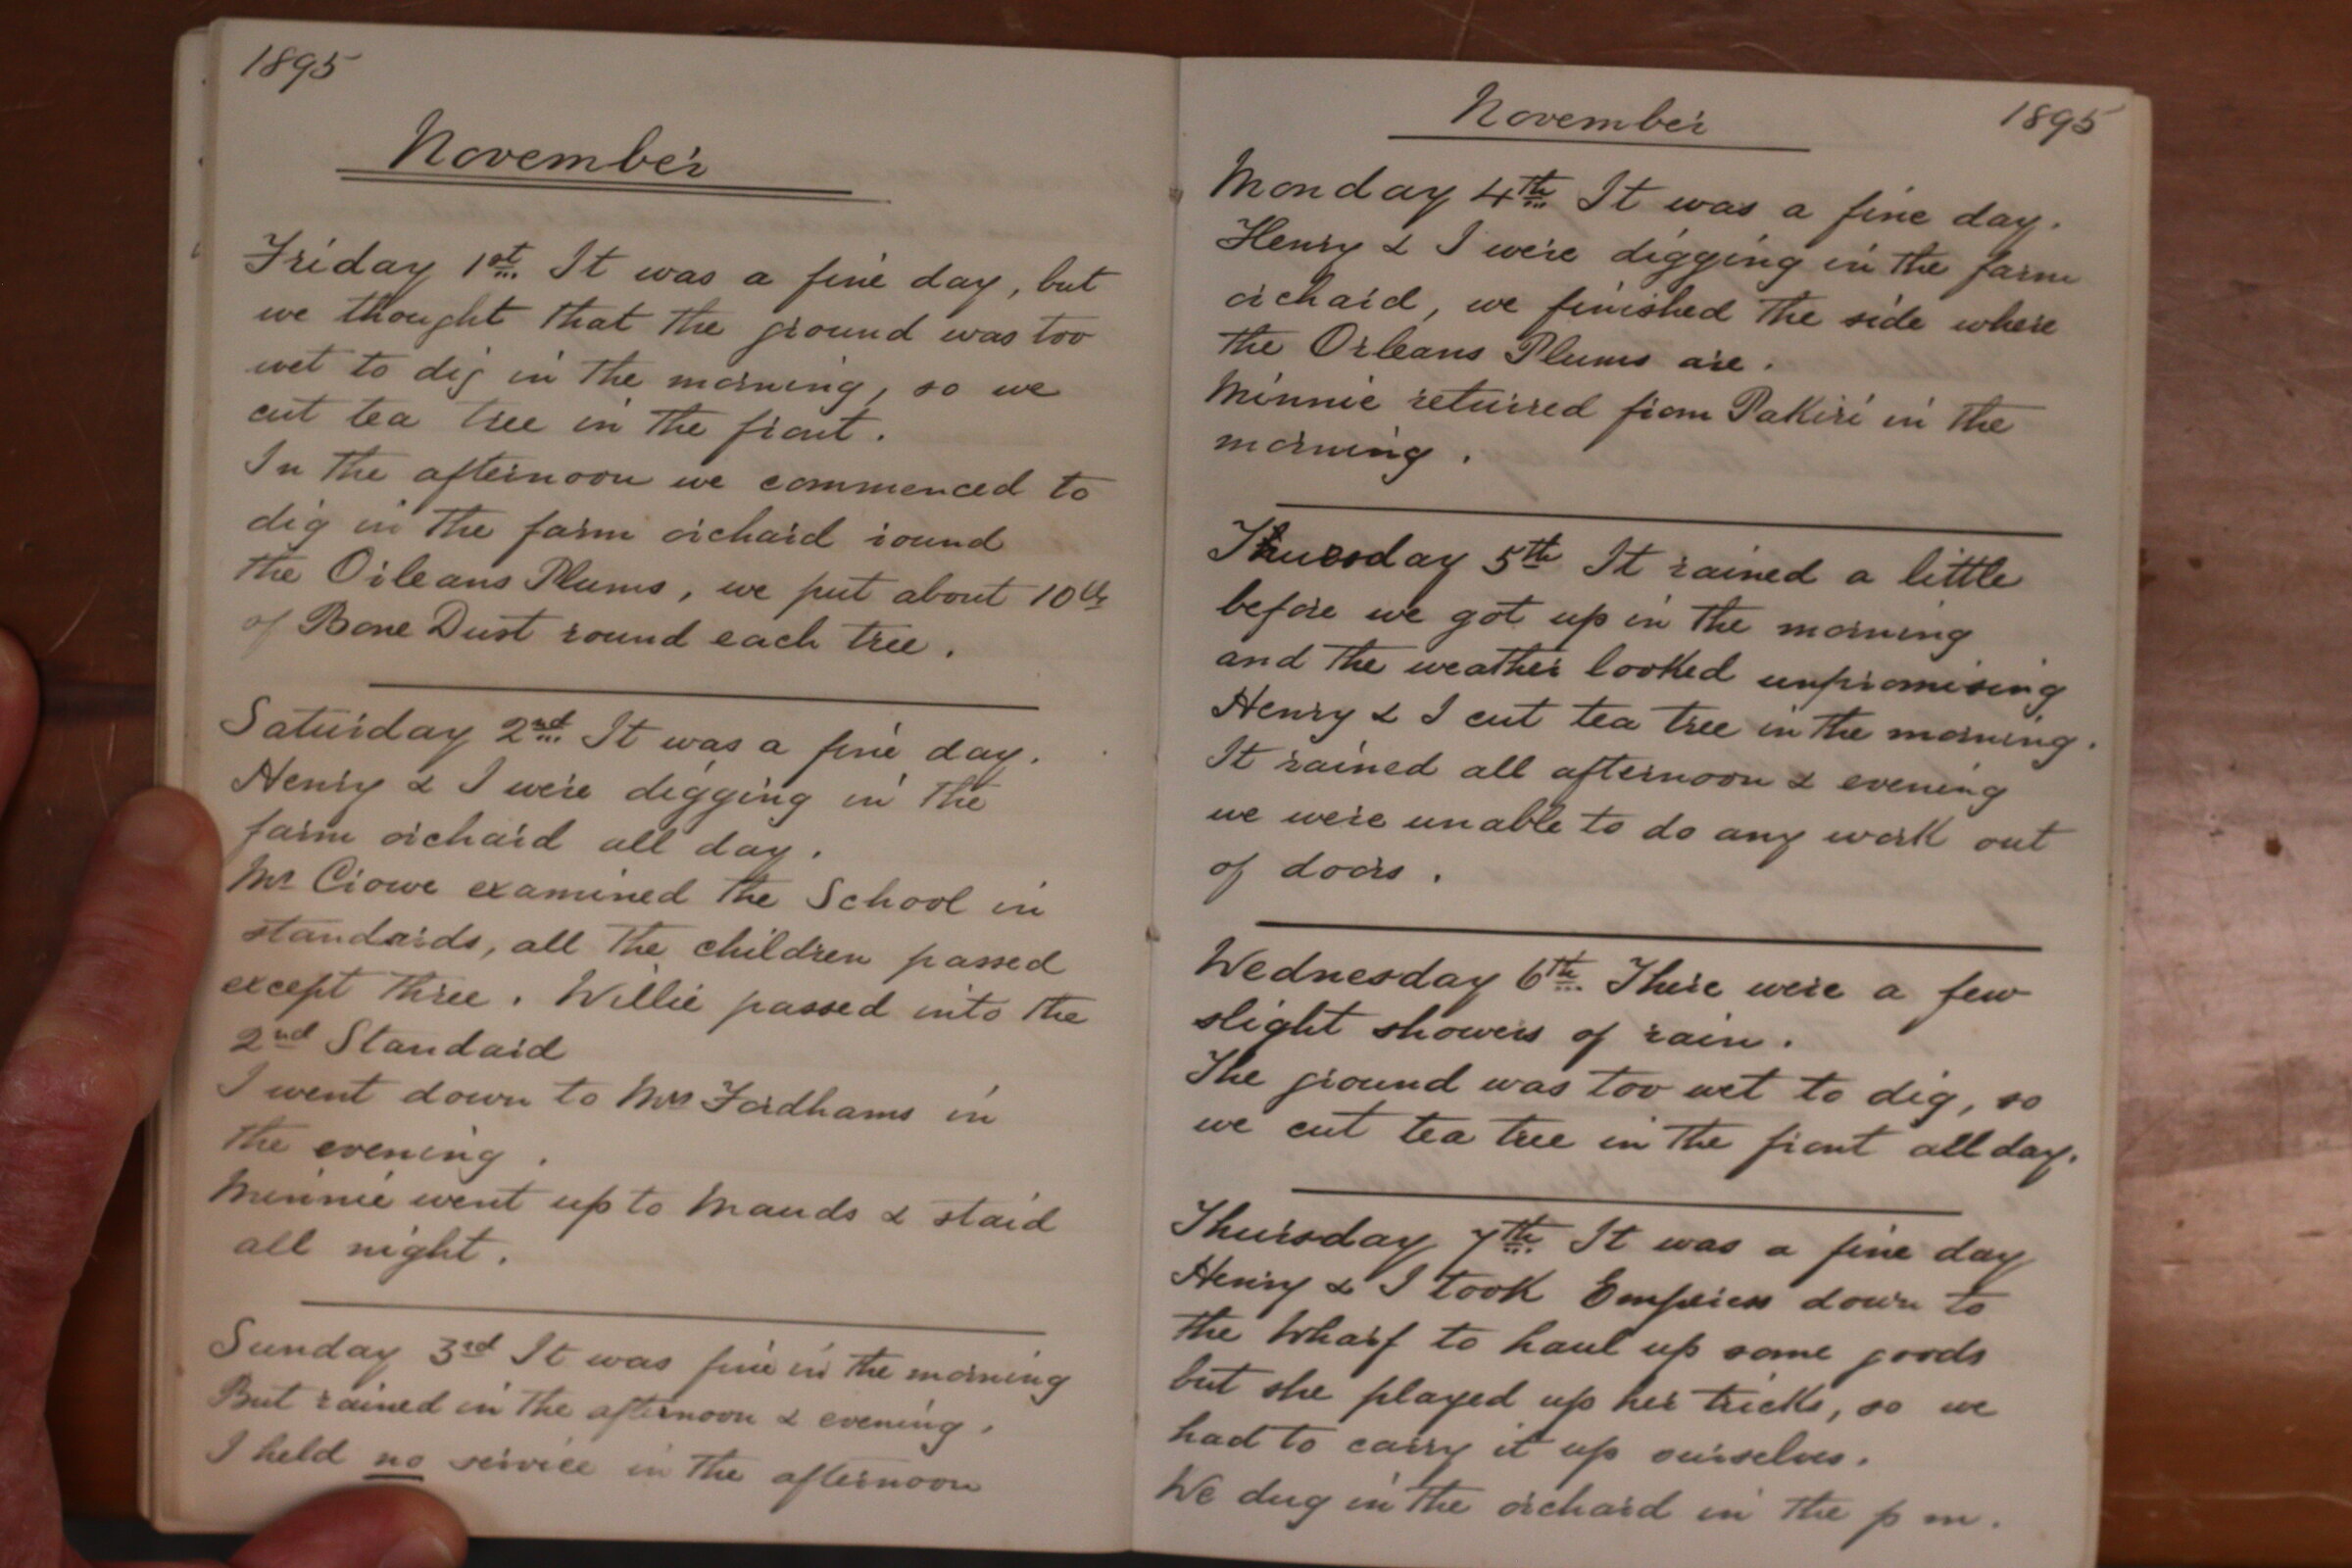 1895
November
Friday 1st. It was a fine day, but
we thought that the ground was too
wet to dig in the morning, so we
cut tea tree in the front.
In the afternoon we commenced to
dig in the farm orchard round
the Orleans Plums, we put about 10 lbs
of Bone Dust round each tree.
Saturday 2nd. It was a fine day.
Henry & I were digging in the
farm orchard all day.
Mr Crowe examined the School in
standards, all the children passed
except three. Willie passed into the
2nd Standard
I went down to Mrs Fordhams in
the evening.
Minnie went up to Mauds & staid
all night.
Sunday 3rd It was fine in the morning
But rained in the afternoon & evening.
I held no service in the afternoon
November
1895
Monday 4th. It was a fine day.
Henry & I were digging in the farm
orchard, we finished the side where
the Orleans Plums are.
Minnie returred from Pakiri in the
morning.
Tuesday 5th It rained a little
before we got up in the morning
and the weather looked unpromising
Henry & I cut tea tree in the morning.
It rained all afternoon & evening
we were unable to do any work out
of doors.
Wednesday 6th. There were a few
slight showers of rain.
The ground was too wet to dig, so
we cut tea tree in the front all day.
Thursday 7th. It was a fine day
Henry & I took Empress down to
the wharf to haul up some goods
but she played up her tricks, so we
had to carry it up ourselves.
We dug in the orchard in the p m.